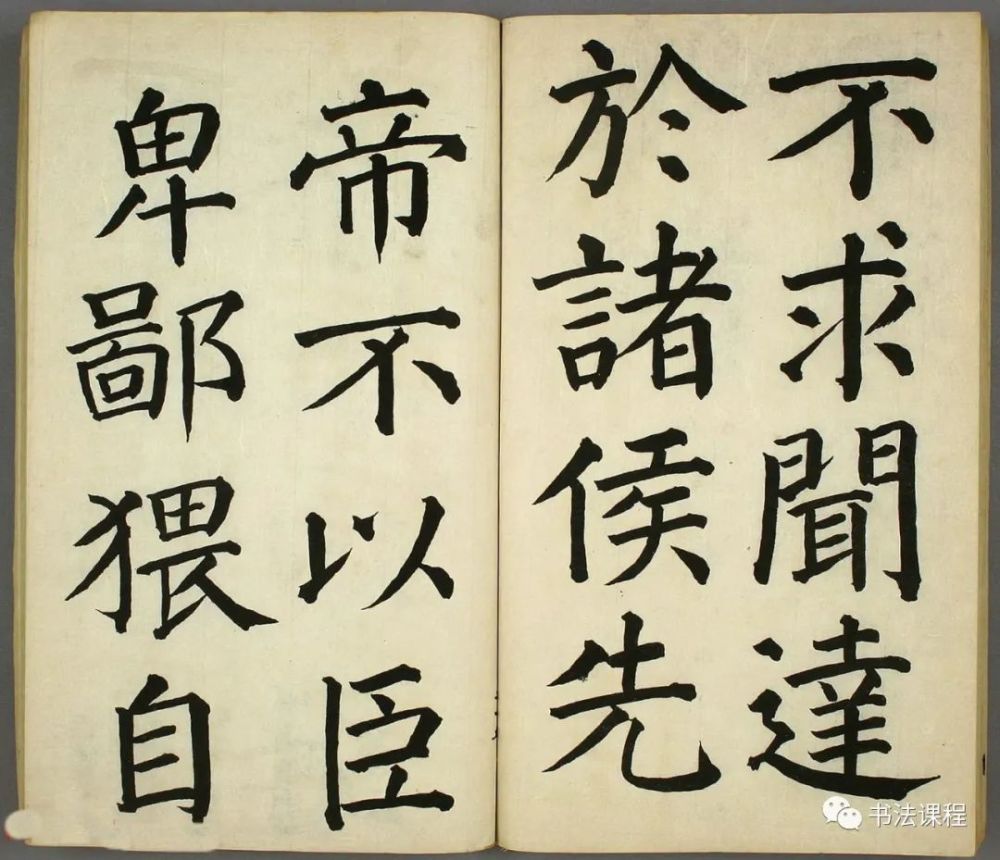 不求聞達
於諸侯先
帝不以臣
卑鄙猥自
书法课程